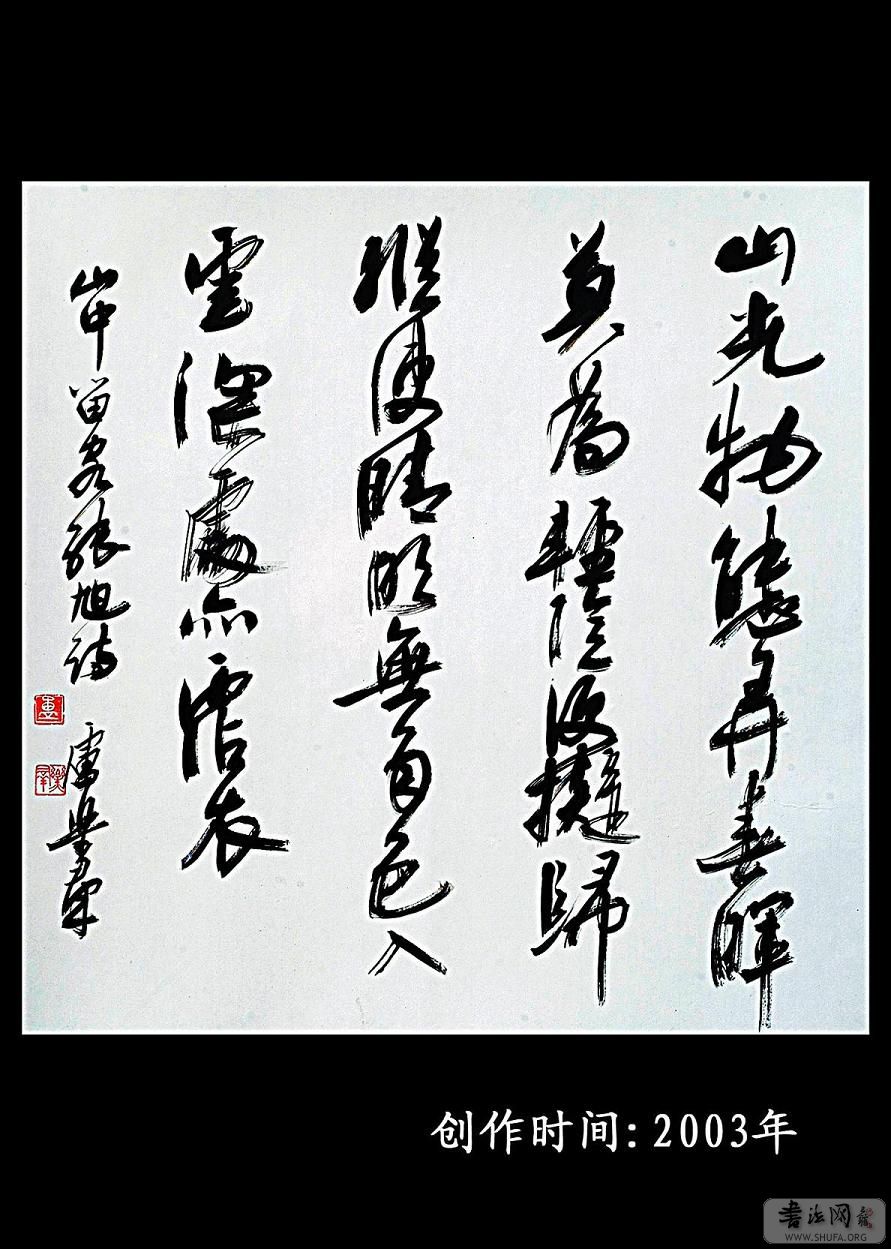 山光物態弄春暉
莫為輕陰便擬歸
縱使晴明無雨色入
雲深處亦霑衣
山中留客張旭詩 盧
创作时间:2003年
書法网
WWW.SHUFA.ORG